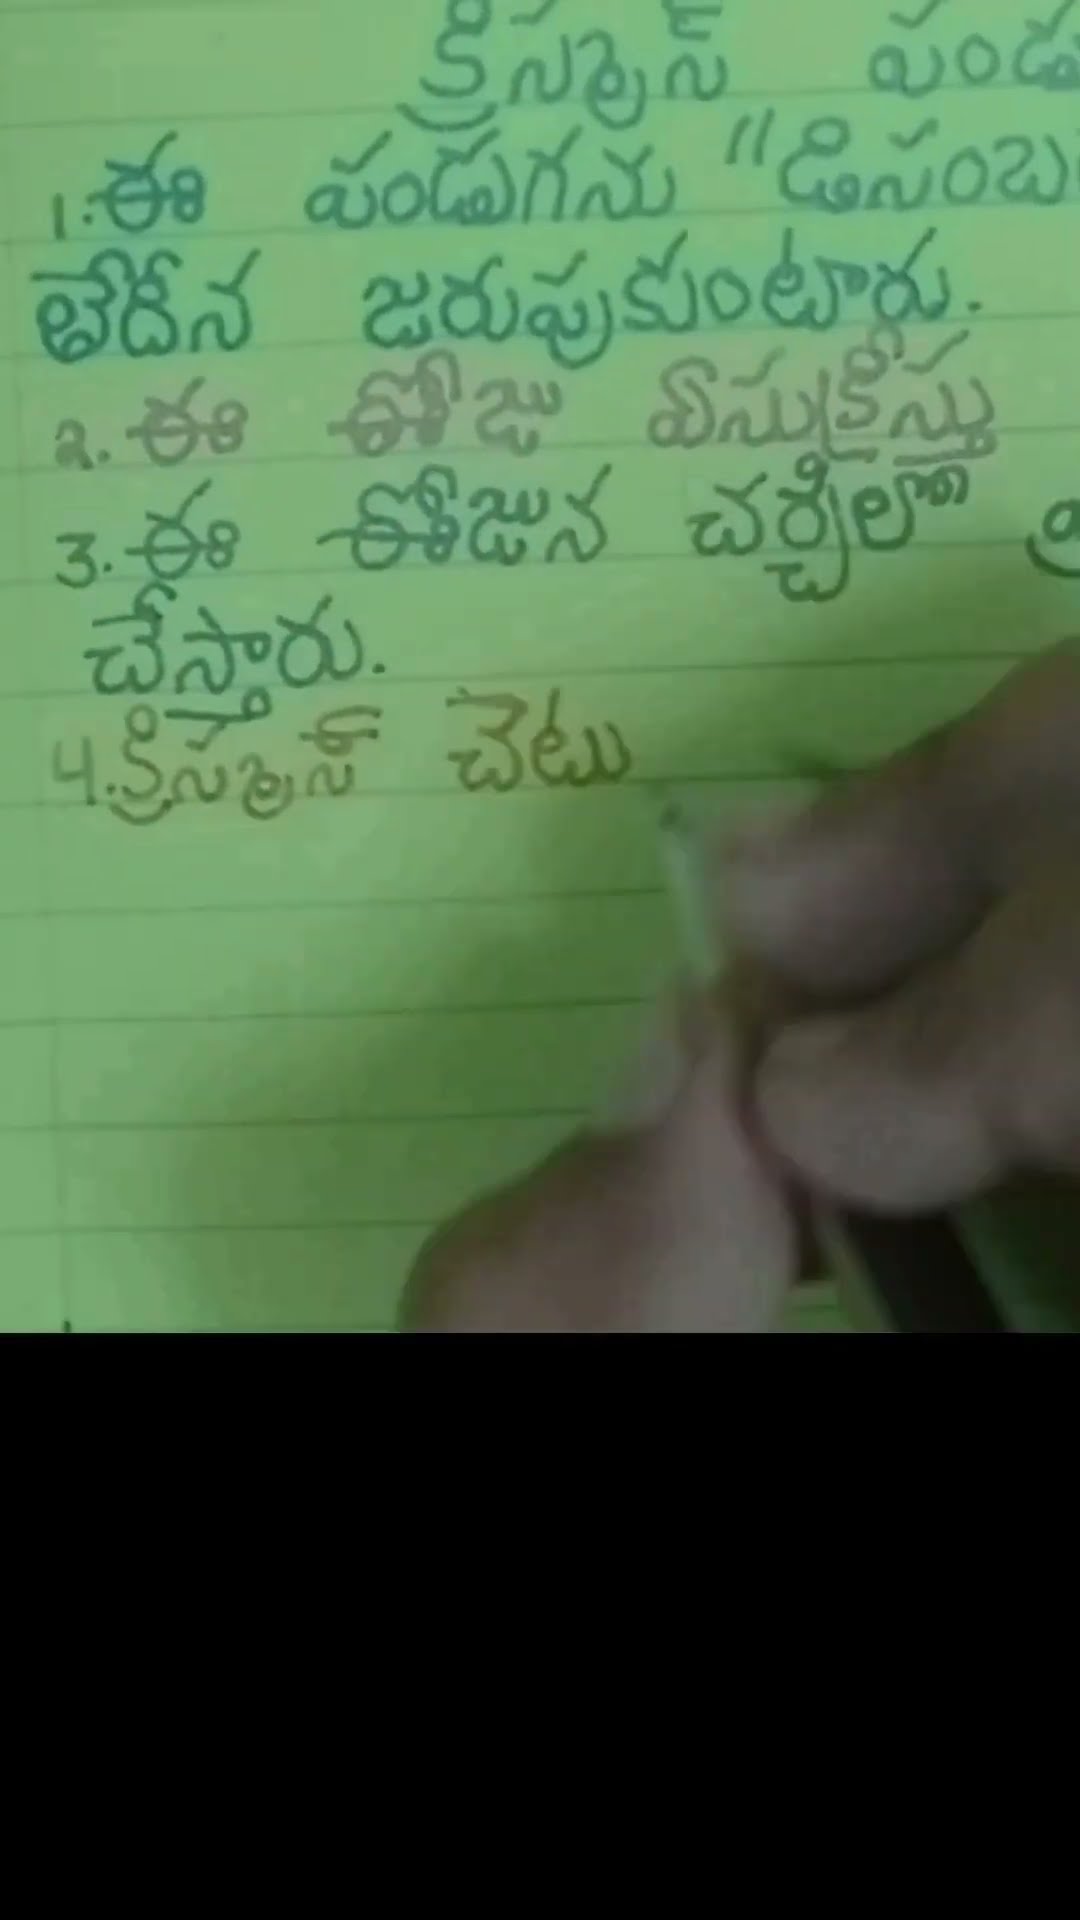 క్రిస్మస్ పండు
1. ఈ పండుగను "డిసెంబ
తేదీన జరుపుకుంటారు.
2. ఈ రోజు ఏసుక్రీస్తు
3. ఈ రోజున చర్చిలో ప్ర
చేస్తారు.
4. క్రిస్మస్ చెటు